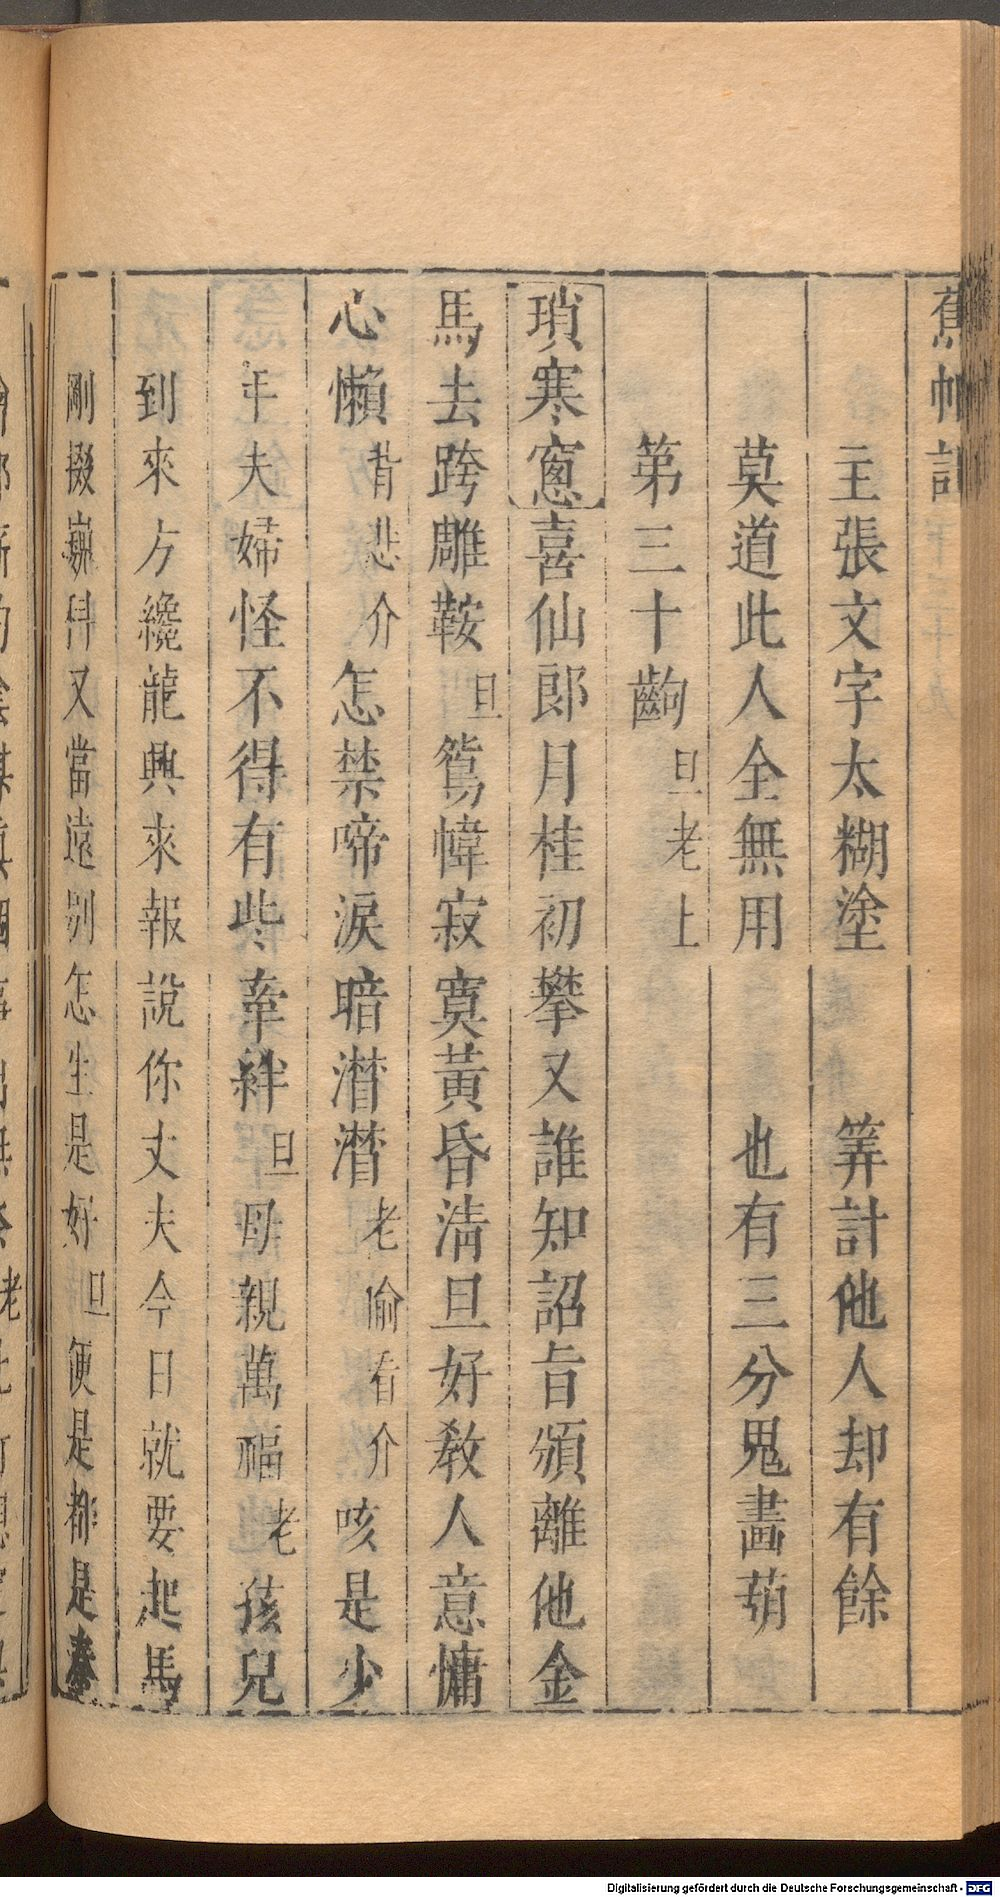 蕉帕記
主張文字太糊塗　筭計他人却有餘
莫道此人全無用　也有三分鬼畫葫
第三十齣 旦老上
瑣寒窻 喜仙郎月桂初攀又誰知詔旨頒離他金
馬去跨雕鞍 旦 鴛幃寂寞黃昏淸旦好教人意慵
心懶 背悲介 怎禁啼淚暗潸潸 老偷看介 咳是少
年夫婦怪不得有些牽絆 旦 母親萬福 老 孩兒
到來方纔龍興來報說你丈夫今日就要起馬
剛掇巍科又當遠別怎生是好 旦 便是都是秦
Digitalisierung gefördert durch die Deutsche Forschungsgemeinschaft - DFG